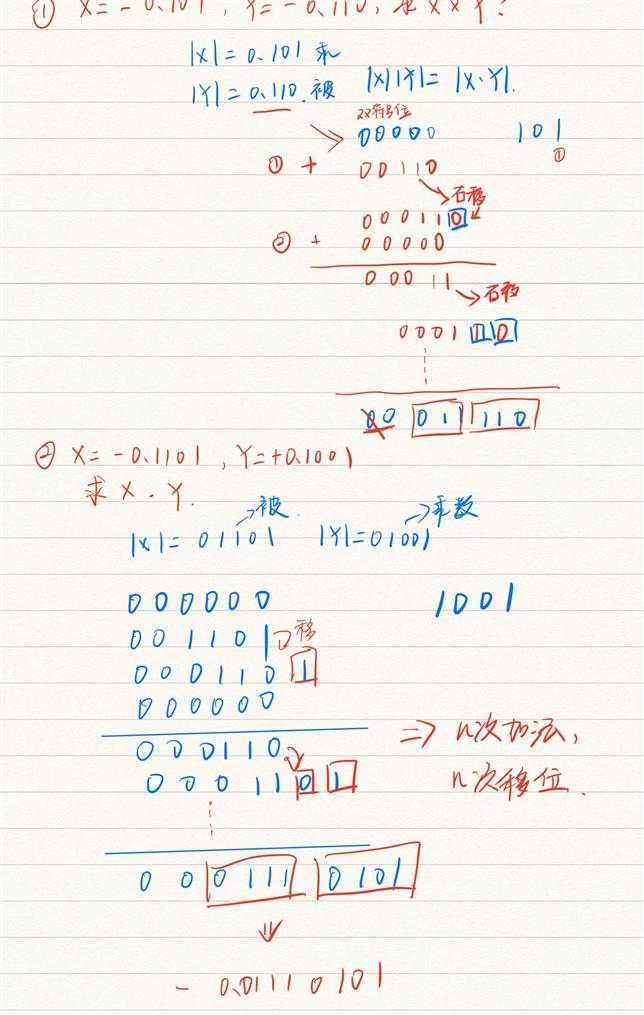 ① X=-0.101, Y=-0.110, 求 X×Y?
|X|=0.101 乘
|Y|=0.110. 被 |X||Y|=|X·Y|.
双符号位
00000 101
① + 00110 ①
右移
000110
② + 00000
00011
右移
0001 10
00 011 110
② X=-0.1101, Y=+0.1001
求 X·Y.
被 乘数
|X|=01101 |Y|=01001
000000 1001
001101 移
000110 1
000000
000110 ⇒ n次加法,
000110 1 n次移位.
000111 0101
⇓
-0.01110101